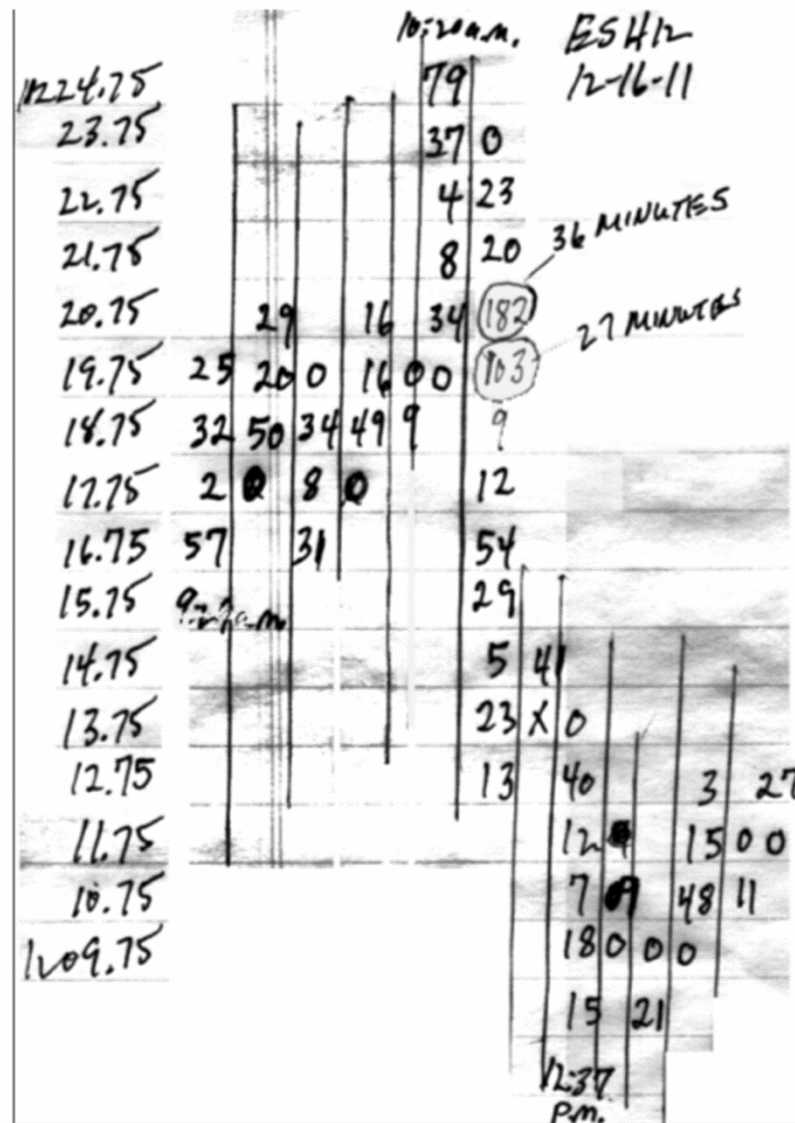 10:20 a.m. ESH12
12-16-11
1224.75 79
23.75 37 0
22.75 4 23
36 MINUTES
21.75 8 20
20.75 29 16 34 182
27 MINUTES
19.75 25 20 0 16 0 0 103
18.75 32 50 34 49 9 9
17.75 2 0 8 0 12
16.75 57 31 54
15.75 29
14.75 5 41
13.75 23 X 0
12.75 13 40 3 27
11.75 12 15 0 0
10.75 7 48 11
1209.75 18 0 0 0
15 21
12:37
p.m.